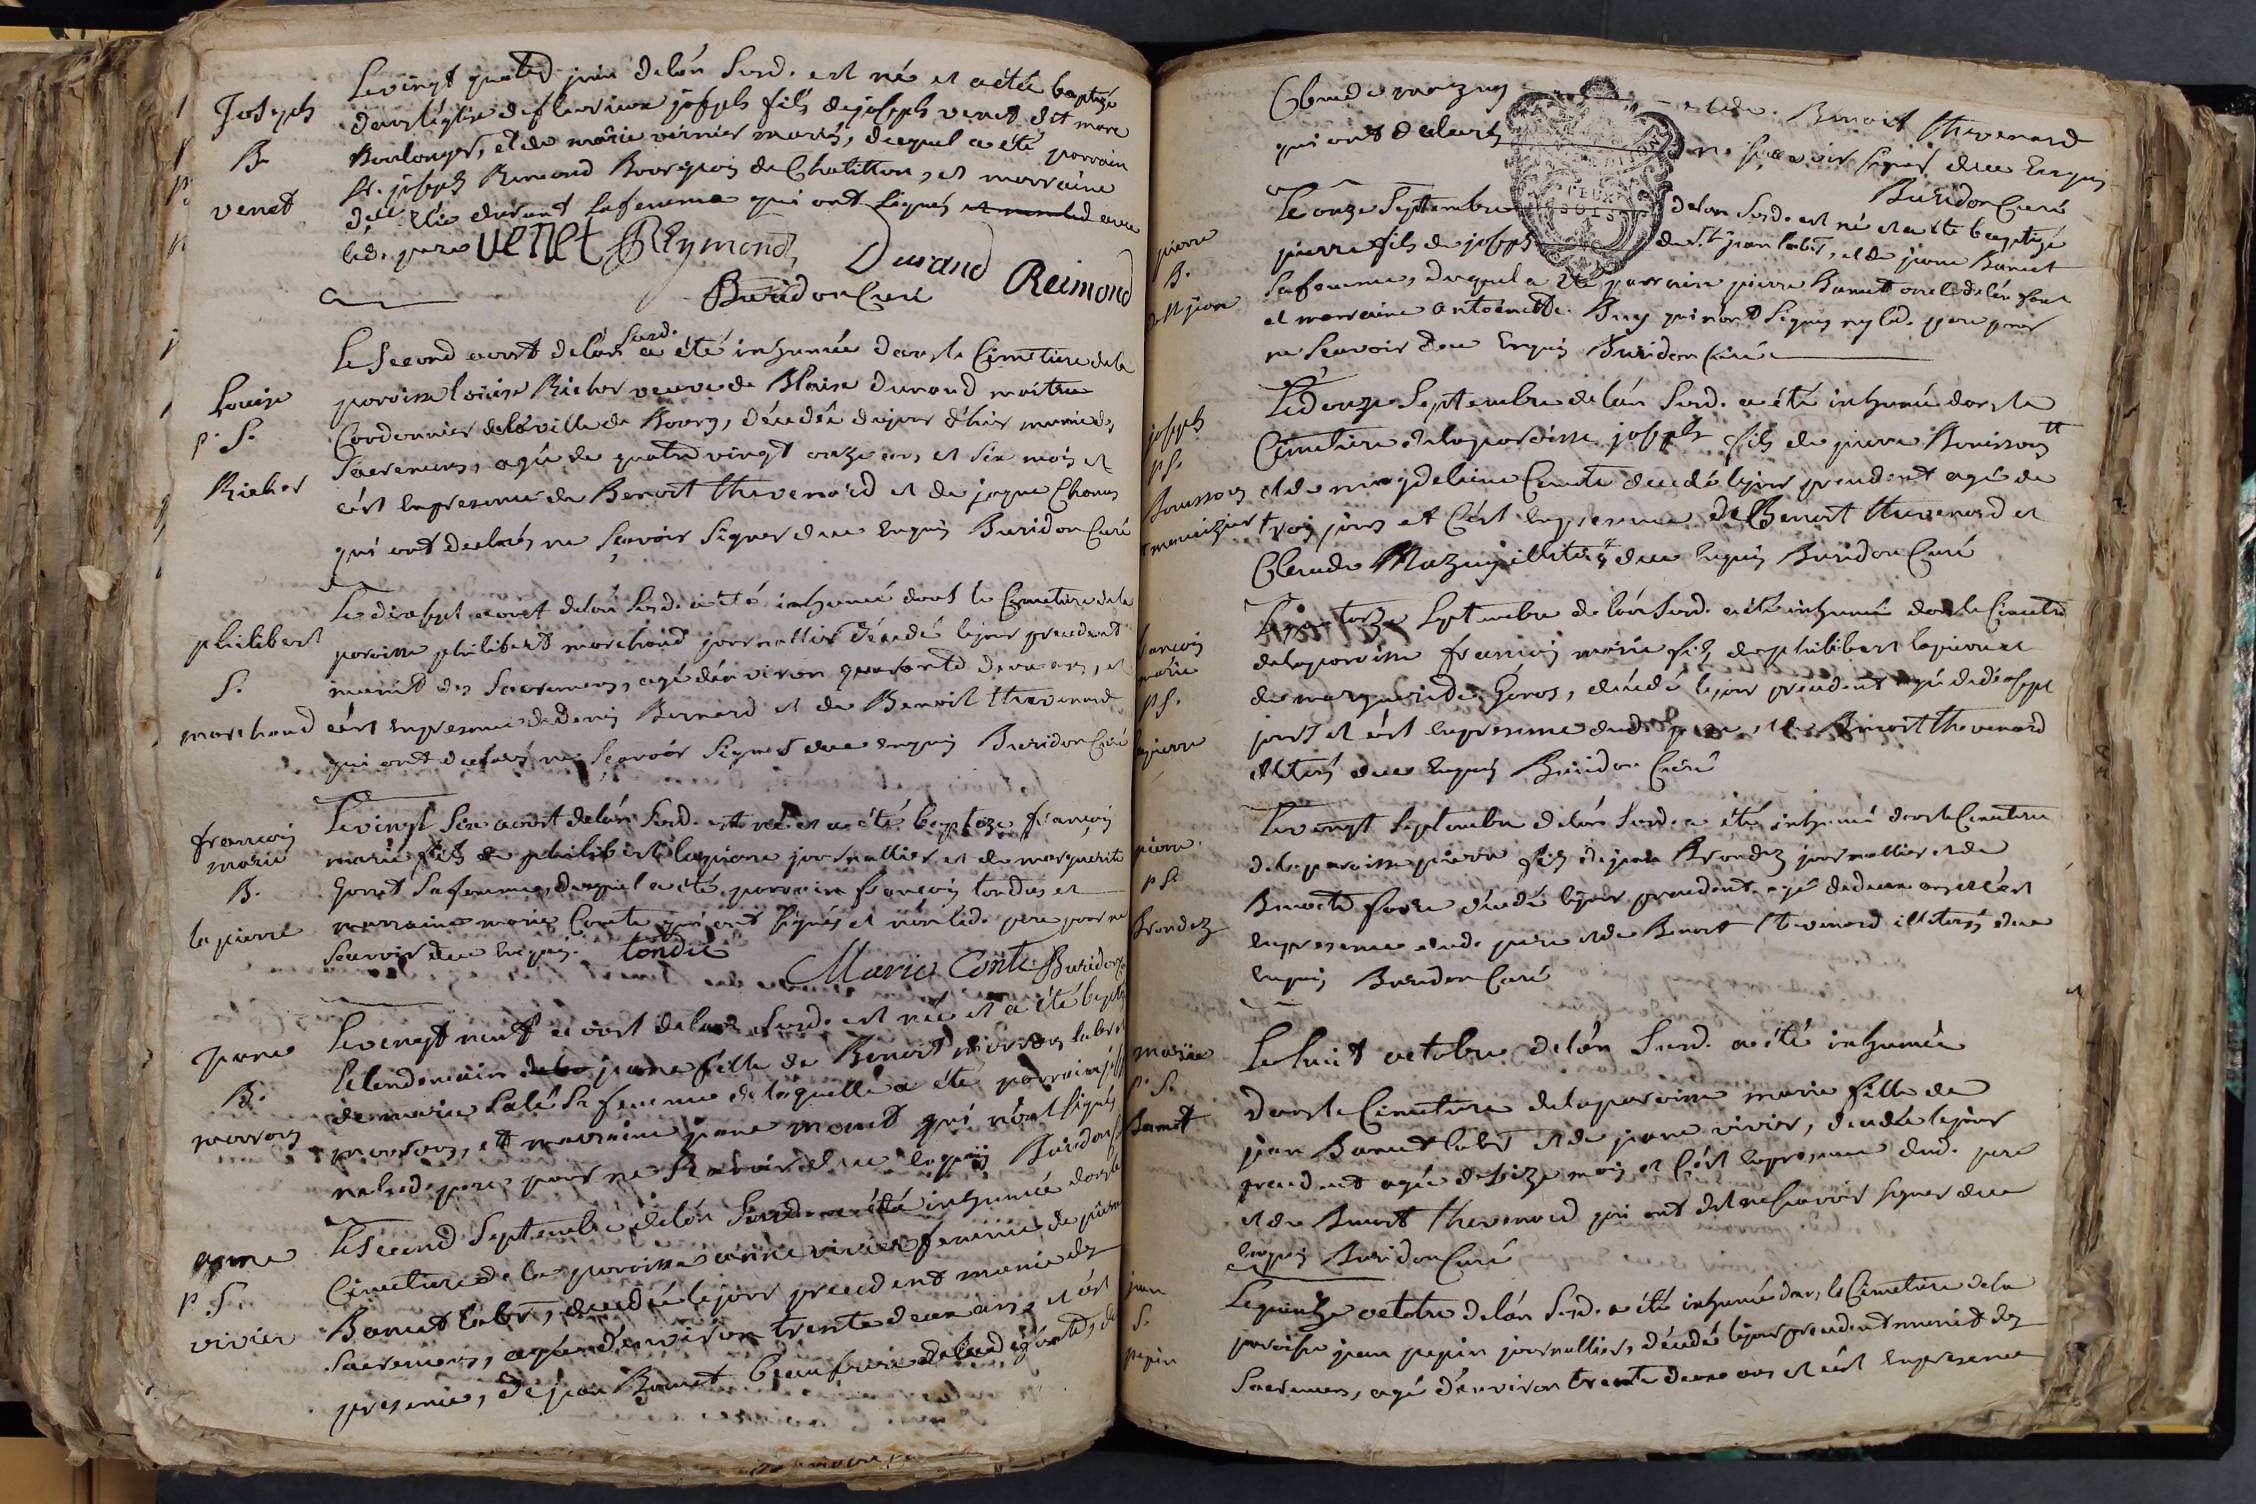 Joseph
B.
venet
Le vingt quatre juin de l'án susd. est né et a été baptizé
dans léglise de fleurieux joseph fils de joseph venet dit more
Boulonger, et de marie vernier mariés, duquel a été parrain
Sr. joseph Remond Bourgeois de Chatillon, et marraine
durand sa femme qui ont signés avec
led. pere venet Reymond, Durand Reimond
Buridon Curé
Louise
p. S.
Richer
Le second aoust de l'án susd. a été inhumée dans le Cimetiere de la
paroisse louise Richer veuve de Blaise durand maitre
Cordonnier de la ville de Bourg, décédée du jour d'hier munie des
Sacremens, agée de quatre vingt onze ans, et six mois et
c'ést en presence de Benoit thevenard et de
qui ont declarés ne sçavoir signer de ce enquis Buridon Curé
philibert
S.
marchand
Le dixsept aoust de l'án susd. a été inhumé dans le Cimetiere de la
paroisse philibert marchand journallier décédé le jour precedent
munit des Sacremens, agé d'énviron quarante deux ans, et
c'ést en presence de denis Bernard et de Benoit thevenard
qui ont declarés ne sçavoir signer de ce enquis Buridon Curé
francois
marie
B.
la pierre
Le vingt six aoust de l'án susd. est né et a été baptizé francois
marie fils de philibert lapierre journallier et de marguerite
Goret sa femme, duquel a été parrain francois tondus et
marraine marie Conte qui ont signés et non led. pere pour ne
sçavoir de ce enquis. tondu
Marie Conte Buridon
jeane
B.
morron
Le vingt neuf aoust de l'an susd. est née et a été baptizée
le lendemain jeane fille de Benoit morron labr et
de marie Salé sa femme de laquelle a été parrain
morron, et marraine jeane monet qui n'ont signés
ne led. pere pour ne sçavoir de ce enquis Buridon
anne
p. S.
vivier
Le second Septembre de l'án susd. a été inhumée dans le
Cimetiere de la paroisse anne vivier femme de pierre
Bornet labr, décédée le jour precedent munie des
Sacremens, agée d'énviron trente deux ans, et c'ést
presence, de jean Bornet beaufrere de lad.
Claude mazuy et de Benoit thevenard
qui ont declarés ne sçavoir signer de ce enquis
Buridon Curé
pierre
B.
de st jean
Le onze Septembre de l'an susd. est né et a été baptizé
pierre fils de joseph de st jean labr, et de jeane Bornet
sa femme, duquel a été parrain pierre Bornet oncle de l'énfant
et marraine antoinette Buy qui n'ont signés ny led. pere pour
ne sçavoir de ce enquis Buridon Curé
joseph
p S.
Le douze Septembre de l'án susd. a été inhumé dans le
Cimetiere de la paroisse joseph fils de pierre
et de magdeleine Conte décédé le jour precedent agé de
trois jours et c'ést en presence de Benoit thevenard et
Claude Mazuy illiterés de ce enquis Buridon Curé
francois
marie
p S.
lapierre
Le quatorze Septembre de l'án susd. a été inhumé dans le Cimetiere
de la paroisse francois marie fils de philibert lapierre et
de marguerite Goros, décédé le jour précédent agé de dixsept
jours et c'ést en presence dud. pere, et de Benoit thevenard
illiterés de ce enquis Buridon Curé
pierre
p S.
Brondez
Le vingt Septembre de l'án susd. a été inhumé dans le Cimetiere
de la paroisse pierre fils de jean Brondez journallier et de
Benoite favre décédé le jour precedent agé de deux ans et c'ést
en presence dud. pere et de Benoit thevenard illiterés de ce
enquis Buridon Curé
marie
p. S.
Bornet
Le huit octobre de l'án susd. a été inhumée
dans le Cimetiere de la paroisse marie fille de
jean Bornet labr et de jeane vivier, décédée le jour
precedent agée de seize mois et c'ést en presence dud. pere
et de Benoit thevenard qui ont det ne sçavoir signer de ce
enquis Buridon Curé
jean
S.
pepin
Le quinze octobre de l'án susd. a été inhumé dans le Cimetiere de la
paroisse jean pepin journallier, décédé le jour precedent munit des
Sacremens, agé d'énviron trente deux ans et c'ést en presence